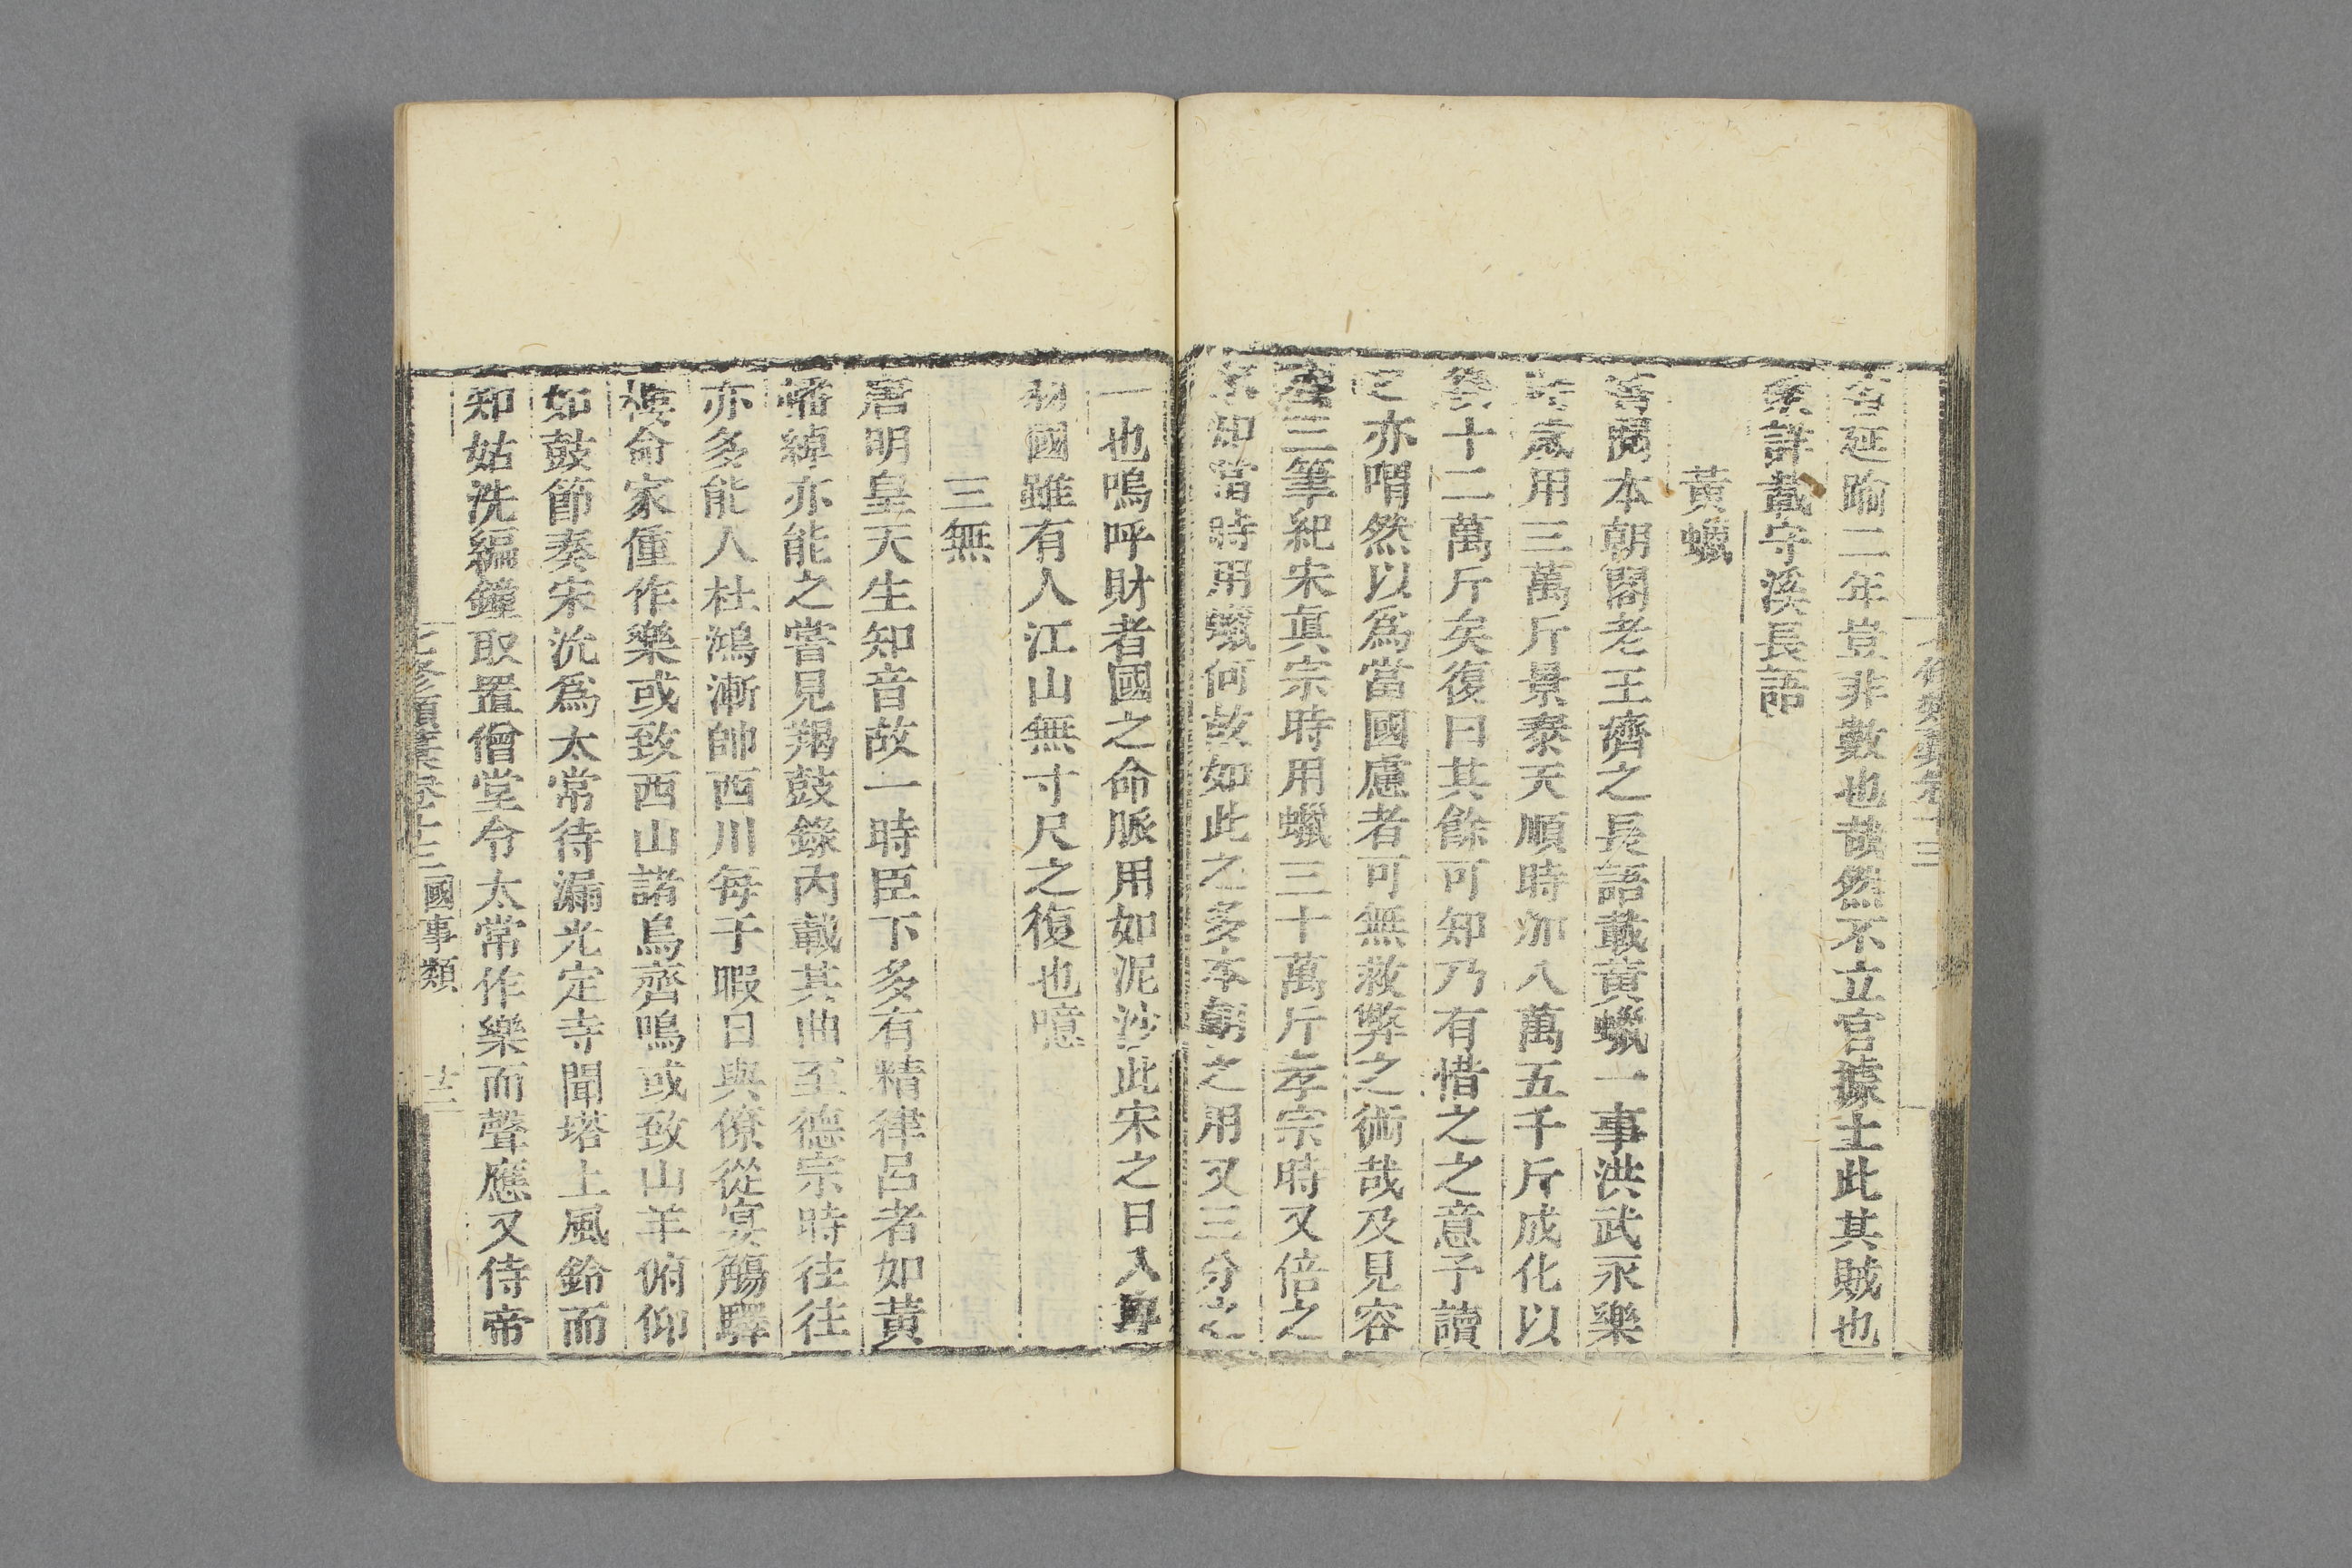 害延踰二年豈非數也哉然不立官據土此其賊也
詳載守溪長語
黃蠟
嘗聞本朝閣老王濟之長語載黃蠟一事洪武永樂
歲用三萬斤景泰天順時加八萬五千斤成化以
後十二萬斤矣復曰其餘可知乃有惜之之意予讀
之亦喟然以為當國慮者可無救弊之術哉及見容
齋三筆紀宋真宗時用蠟三十萬斤孝宗時又倍之
不知當時用蠟何故如此之多本朝之用又三分之
一也嗚呼財者國之命脈用如泥沙此宋之日入
國雖有人江山無寸尺之復也噫
三無
唐明皇天生知音故一時臣下多有精律呂者如黃
幡綽亦能之嘗見羯鼓錄內載其曲至德宗時往往
亦多能人杜鴻漸帥西川每于暇日與僚從宴觴驛
樓命家僮作樂或致西山諸鳥齊鳴或致山羊俯仰
如鼓節奏宋沇為太常待漏光定寺聞塔上風鈴而
知姑洗編鐘取置僧堂令太常作樂而聲應又侍帝
七修類藁卷十三 國事類 十三